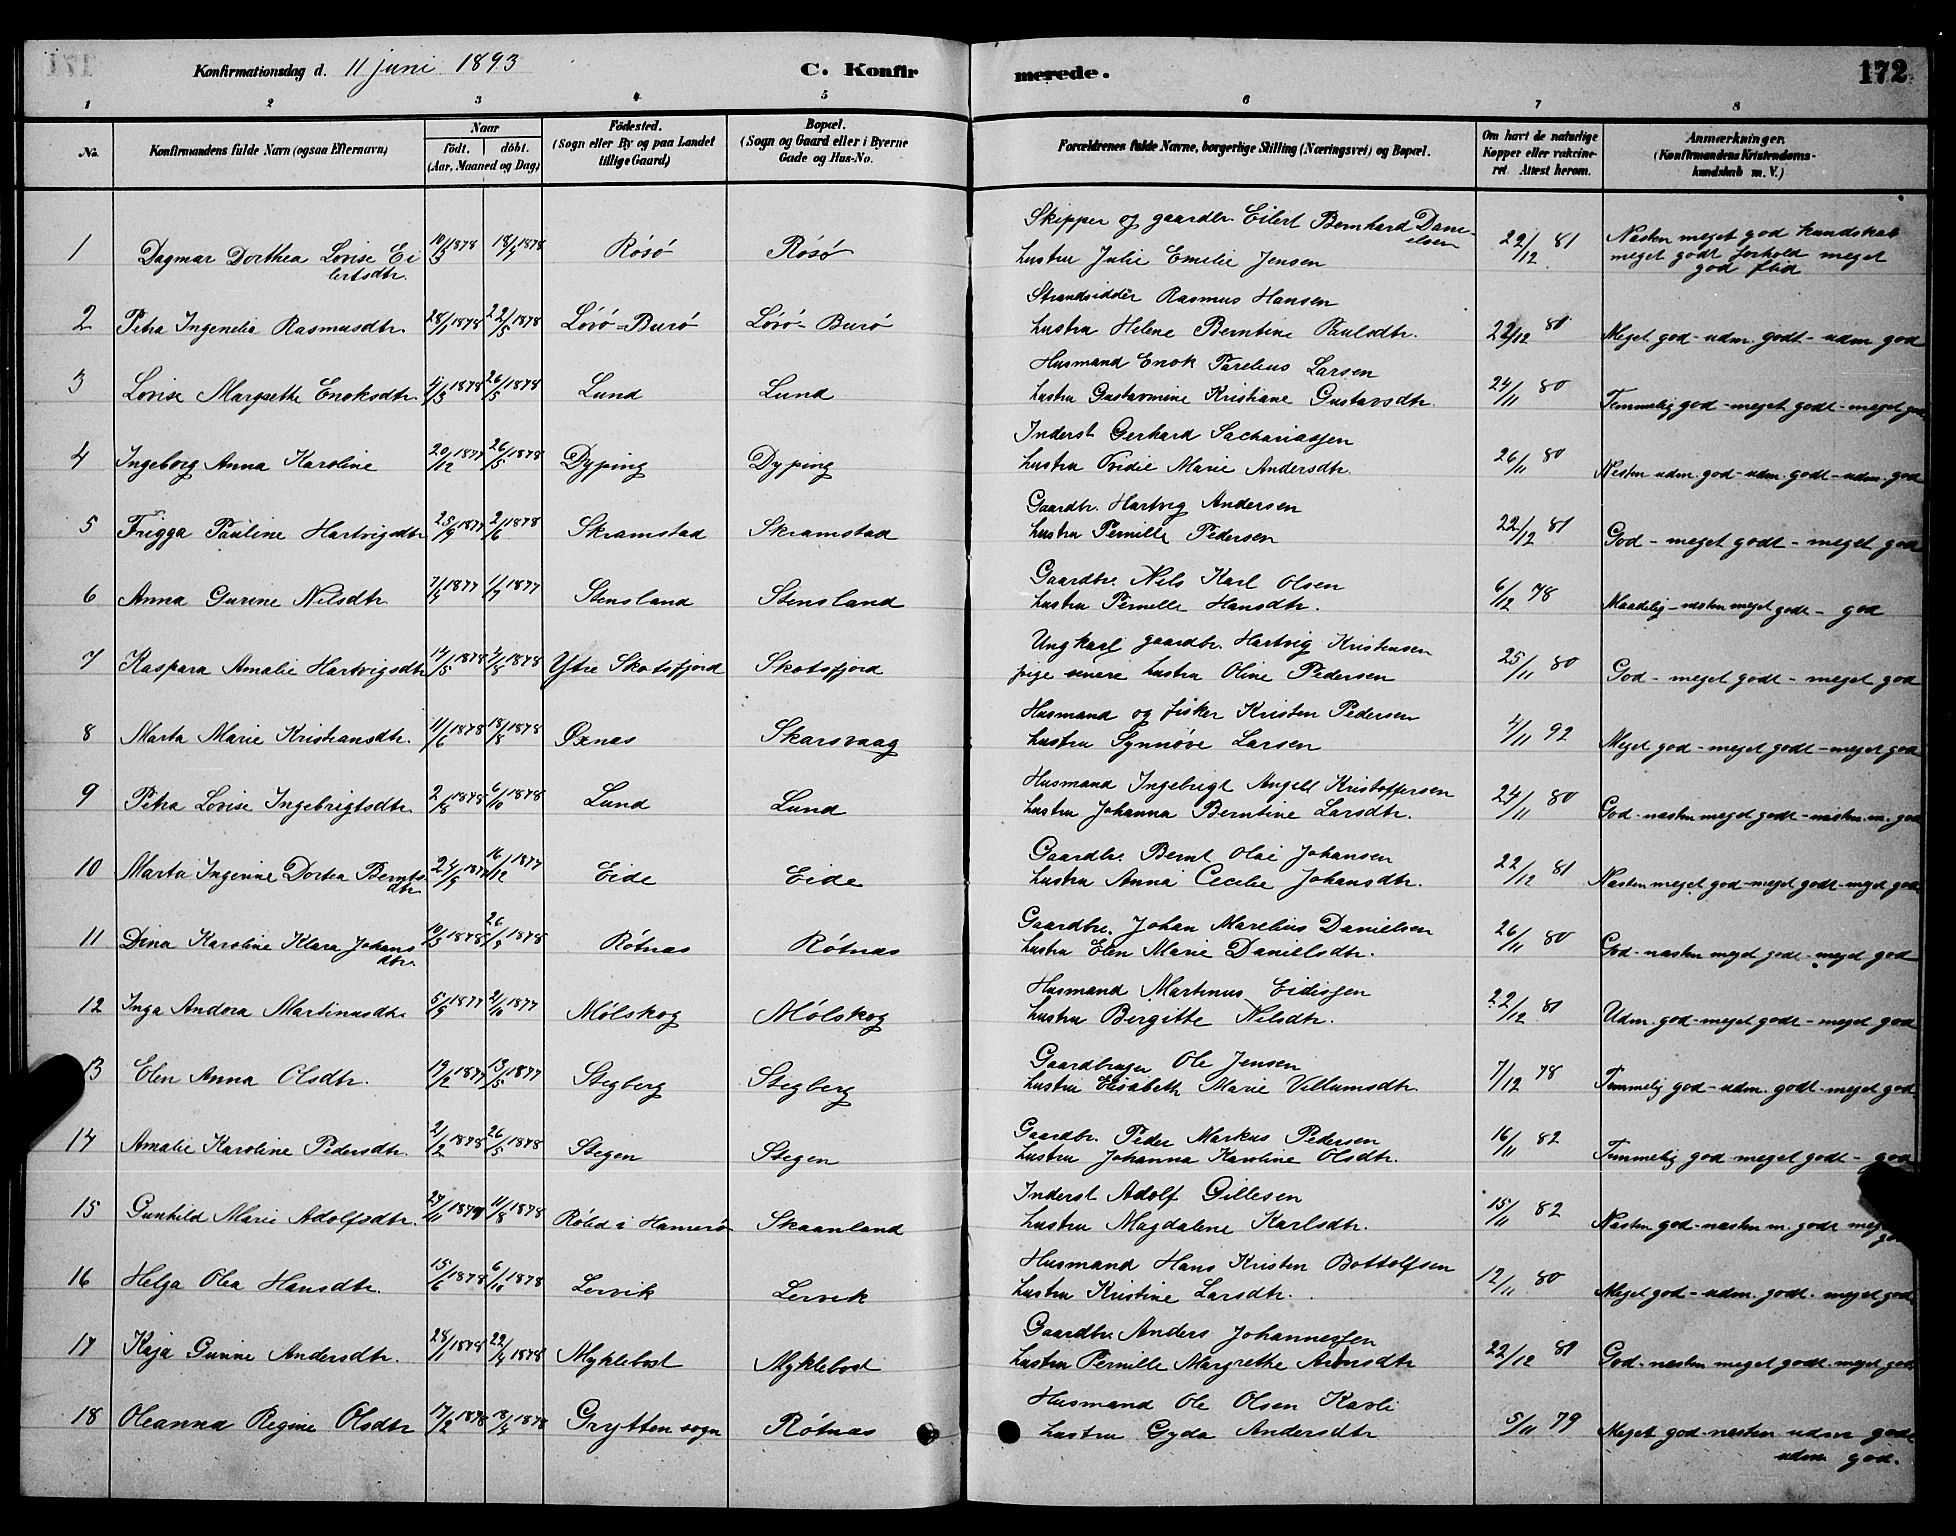 171
Konfirmationsdag d. 11 juni 1893 C. Konfirmerede. 172
1 2 3 4 5 6 7 8
No. Konfirmandens fulde Navn (ogsaa Efternavn) Naar født. døbt. (Aar, Maaned og Dag) Födested. (Sogn eller By og paa Landet tillige Gaard) Bopæl. (Sogn og Gaard eller i Byerne Gade og Hus-No. Forældrenes fulde Navne, borgerlige Stilling (Næringsvei) og Bopæl. Om havt de naturlige Kopper eller vaccineret. Attest herom. Anmærkninger. (Konfirmandens Kristendomskundskab m. V.)
1 Dagmar Dorthea Lovise Eilertsdtr. 10/3 1878 18/4 1878 Røsø Røsø Skipper og gaardbr. Eilert Bernhard Danielsen Hustru Julie Emilie Jensen 22/12 81 Næsten meget god kundskab meget godt forhold meget god flid
2 Petra Ingenelia Rasmusdtr. 28/1 1878 22/5 1878 Lørø-Burø Lørø-Burø Strandsidder Rasmus Hansen
Hustru Helene Berntine Paulsdtr. 22/12 81 Meget god - udm. godt - udm god
3 Lovise Margrethe Enoksdtr. 4/3 1878 26/5 1878 Lund Lund Husmand Enok Parelius Larsen
Hustru Gustavmine Kristiane Gustavsdtr. 24/11 80 Temmelig god - meget godt - meget god
4 Ingeborg Anna Karoline 20/12 1877 26/5 1878 Dyping Dyping Inderst Gerhard Sachariassen
Hustru Ovidie Marie Andersdtr. 26/11 80 Næsten udm. god - udm. godt - udm. god
5 Frigga Pauline Hartvigsdtr 25/9 1877 2/6 1878 Skramstad Skramstad Gaardbr. Hartvig Andersen
Hustru Pernille Pedersen 22/12 81 God - meget godt - meget god
6 Anna Gurine Nilsdtr. 1877 1877 Stensland Stensland Gaardbr. Nils Karl Olsen
Hustru Pernille Hansdtr. 6/12 78 Maadelig - næsten meget godt - god
7 Kaspara Amalie Hartvigsdtr 14/5 1878 4/8 1878 Ytre Skotsfjord Skotsfjord Ungkarl gaardbr. Hartvig Kristensen
pige senere hustru Oline Pedersen 25/11 80 God - meget godt - meget god
8 Marta Marie Kristiansdtr. 11/6 1878 18/8 1878 Øxnæs Skarsvaag Husmand og fisker Kristen Pedersen
Hustru Synnøve Larsen 4/11 92 Meget god - meget godt - meget god
9 Petra Lovise Ingebrigtsdtr. 2/8 1878 6/10 1878 Lund Lund Husmand Ingebrigt Angell Kristoffersen
Hustru Johanna Berntine Larsdtr. 24/11 80 God - næsten meget godt - næsten m. god
10 Marta Ingerine Dortea Berntsdtr. 24/9 1877 16/12 1877 Eide Eide Gaardbr. Bernt Olai Johansen
Hustru Anna Cecilie Johansdtr. 22/12 81 Næsten meget god - meget godt - meget god
11 Dina Karoline Klara Johansdtr. 10/3 1878 26/9 1878 Røtnæs Røtnæs Gaardbr. Johan Marelius Danielsen
Hustru Elen Marie Danielsdtr. 26/11 80 God - næsten meget godt - meget god
12 Inga Andora Martinusdtr. 5/9 1877 21/10 1877 Mølskog Mølskog Husmand Martinus Eidissen
Hustru Bergitte Nilsdtr. 22/12 81 Udm. god - meget godt - meget god
13 Elen Anna Olsdtr. 19/2 1877 13/5 1877 Stegberg Stegberg Gaardbruger Ole Jensen
Hustru Elisabeth Marie Villumsdtr 7/12 78 Temmelig god - udm. godt - meget god
14 Amalie Karoline Pedersdtr. 21/2 1878 26/5 1878 Stegen Stegen Gaardbr. Peder Markus Pedersen
Hustru Johanna Karoline Olsdtr. 16/11 82 Temmelig god meget godt - god
15 Gunhild Marie Adolfsdtr. 27/11 1877 11/8 1878 Rølid i Hamerø Skaanland Inderst Adolf Gillesen
Hustru Magdalene Karlsdtr. 15/11 82 Næsten god - næsten m. godt meget god
16 Helga Olea Hansdtr. 15/6 1878 6/10 1878 Lervik Lervik Husmand Hans Kristen Bottolfsen
Hustru Kristine Larsdtr. 12/11 80 Meget god - udm. godt. meget god
17 Kaja Gurine Andersdtr. 28/1 1878 22/4 1878 Myklebost Myklebost Gaardbr. Anders Johannessen
Hustru Pernille Margrethe Aronsdtr 22/12 81 God - næsten meget godt. meget god
18 Oleanna Regine Olsdtr 17/2 1878 18/4 1878 Grytten sogn Røtnæs Husmand Ole Olsen Kavli
Hustru Gyda Andersdtr 5/11 79 Meget god - næsten udm godt
udm. god.